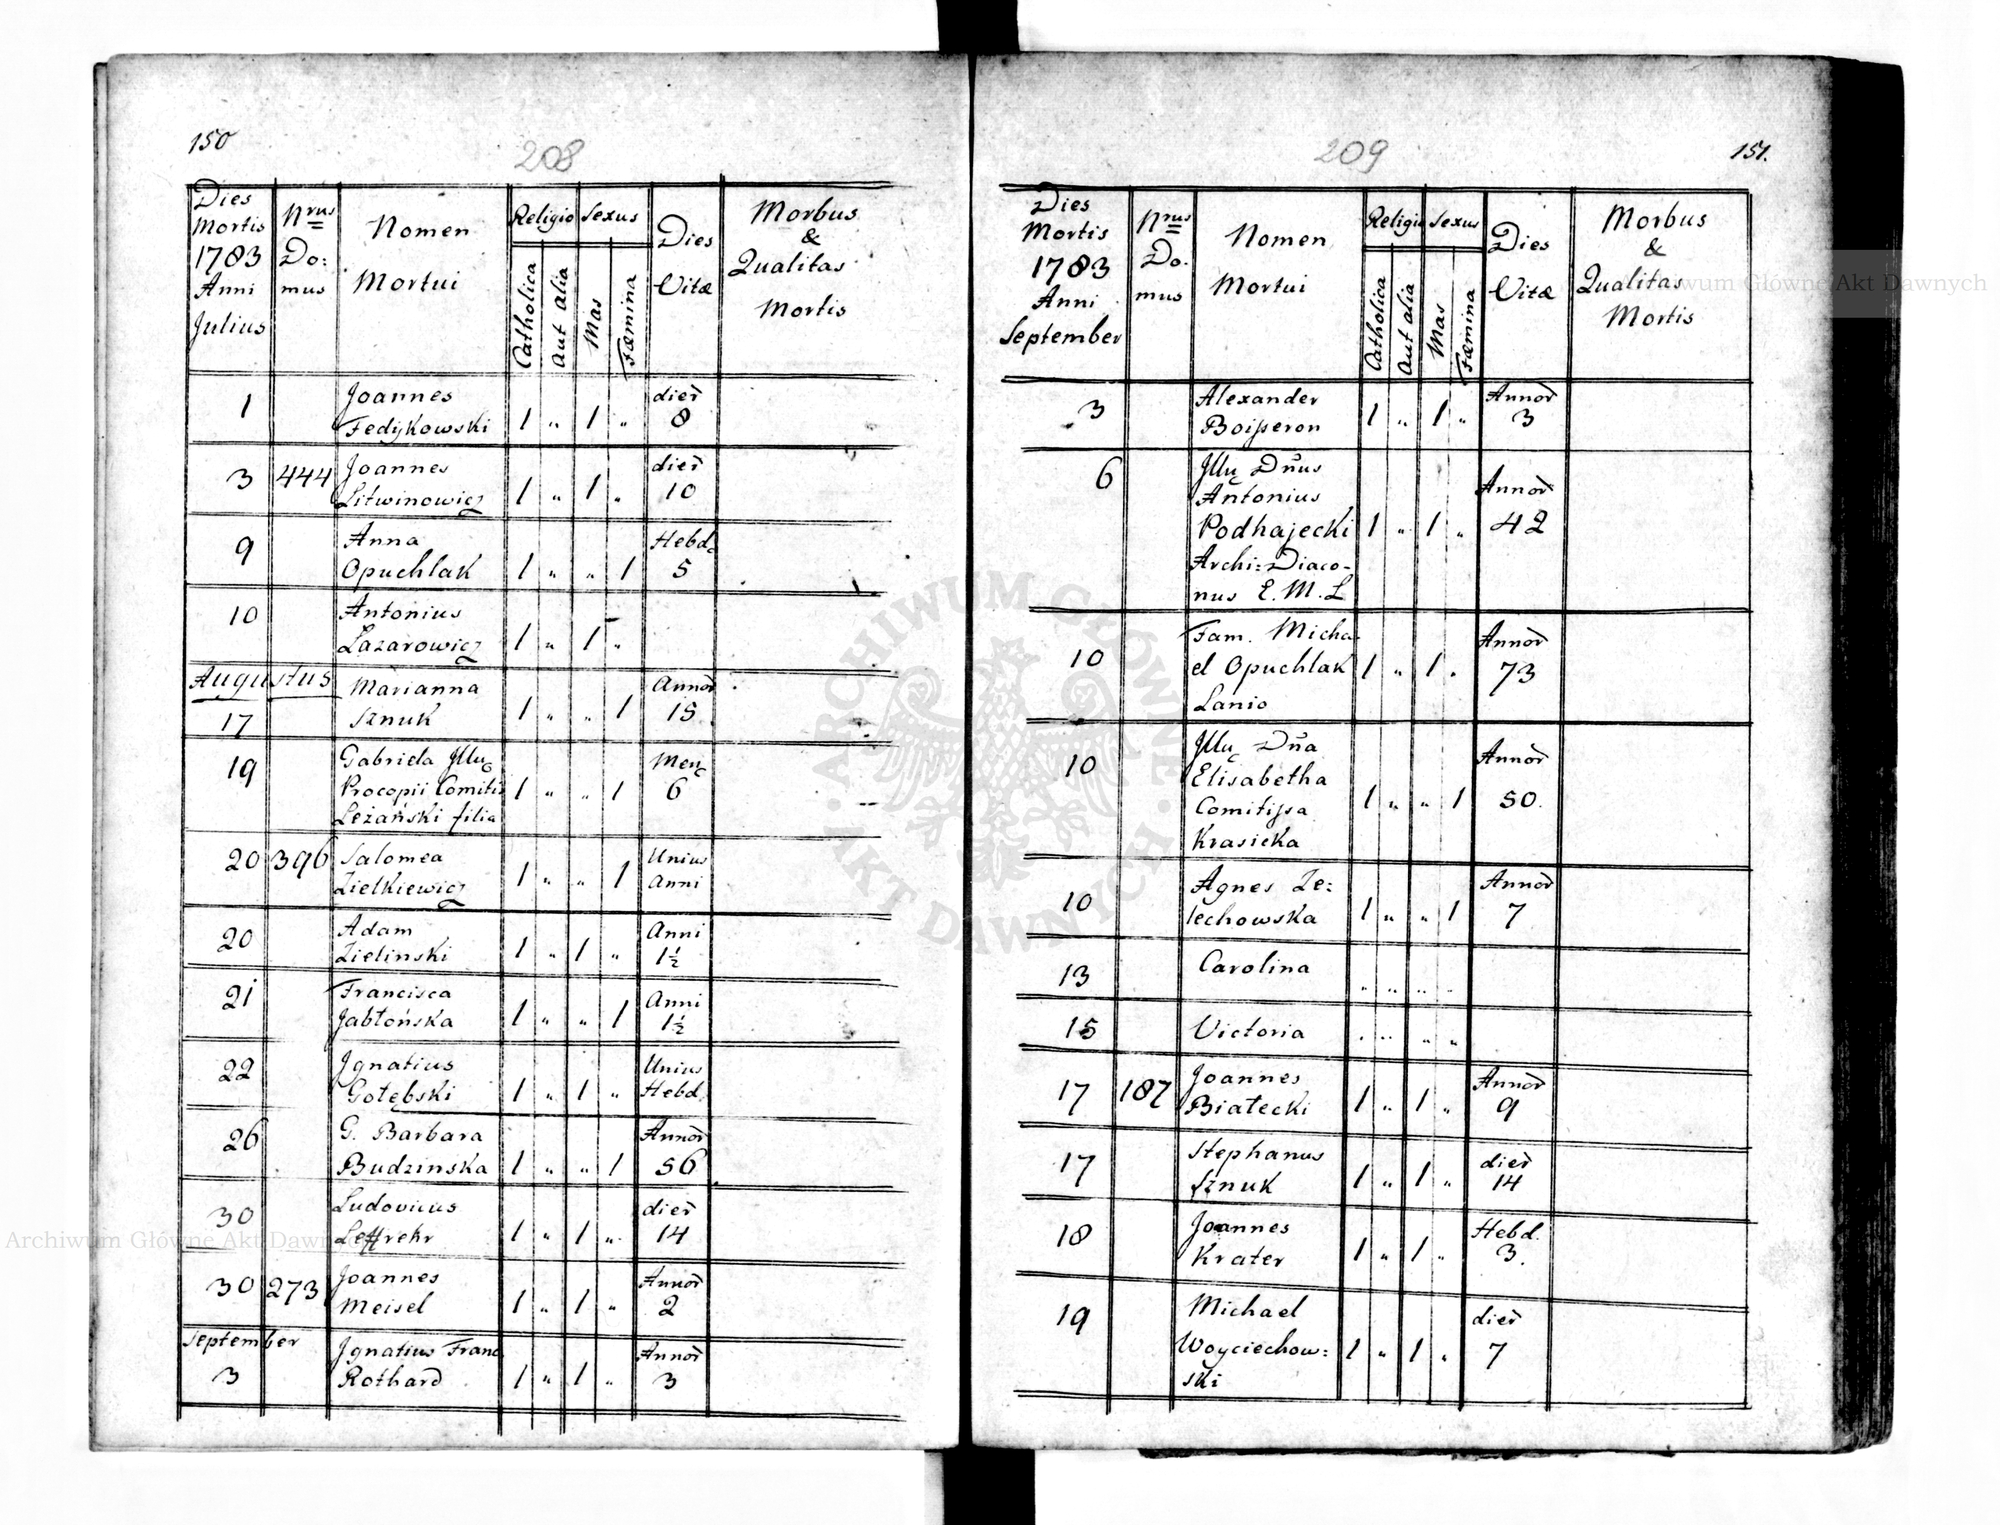 150
208
Dies Mortis 1783 Anni Julius
Nrus Do: mus
Nomen Mortui
Religio
Sexus
Catholica
Aut alia
Mas
Fæmina
Dies Vitæ
Morbus & Qualitas Mortis
1 Joannes Fedÿkowski 1 „ 1 „ dier 8
3 444 Joannes Litwinowicz 1 „ 1 „ dier 10
9 Anna Opuchlak 1 „ „ 1 Hebd. 5
10 Antonius Lazarowicz 1 „ 1 „
Augustus
17 Marianna Sznuk 1 „ „ 1 Annor 15
19 Gabriela Jllu Procopii Comitis Leżański filia 1 „ „ 1 Men 6
20 396 Salomea Zielkiewicz 1 „ „ 1 Unius Anni
20 Adam Zielinski 1 „ 1 „ Anni 1½
21 Francisca Jabłońska 1 „ „ 1 Anni 1½
22 Jgnatius Gołębski 1 „ 1 „ Unius Hebd.
26 G. Barbara Budzinska 1 „ „ 1 Annor 56
30 Ludovicus 1 „ 1 „ dier 14
30 273 Joannes Meisel 1 „ 1 „ Annor 2
September
3 Jgnatius Franc Rothard 1 „ 1 „ Annor 3
209
151.
Dies Mortis 1783 Anni September
Nrus Do. mus
Nomen Mortui
Religio
Sexus
Catholica
Aut alia
Mas
Fæmina
Dies Vitæ
Morbus & Qualitas Mortis
3 Alexander Boisseron 1 „ 1 „ Annor 3
6 Jllu Dnus Antonius Podhajecki Archi: Diaco- nus E. M. L 1 „ 1 „ Annor 42
10 Fam. Micha- el Opuchlak Lanio 1 „ 1 „ Annor 73
10 Jllu Dna Elisabetha Comitissa Krasicka 1 „ „ 1 Annor 50.
10 Agnes Ze: lechowska 1 „ „ 1 Annor 7
13 Carolina „ „ „ „
15 Victoria „ „ „ „
17 187 Joannes Białecki 1 „ 1 „ Annor 9
17 Stephanus Sznuk 1 „ 1 „ dier 14
18 Joannes Krater 1 „ 1 „ Hebd. 3.
19 Michael Woyciechow: ski 1 „ 1 „ dier 7
ARCHIWUM GŁÓWNE AKT DAWNYCH
Archiwum Główne Akt Dawnych
Archiwum Główne Akt Dawnych
Archiwum Główne Akt Dawnych